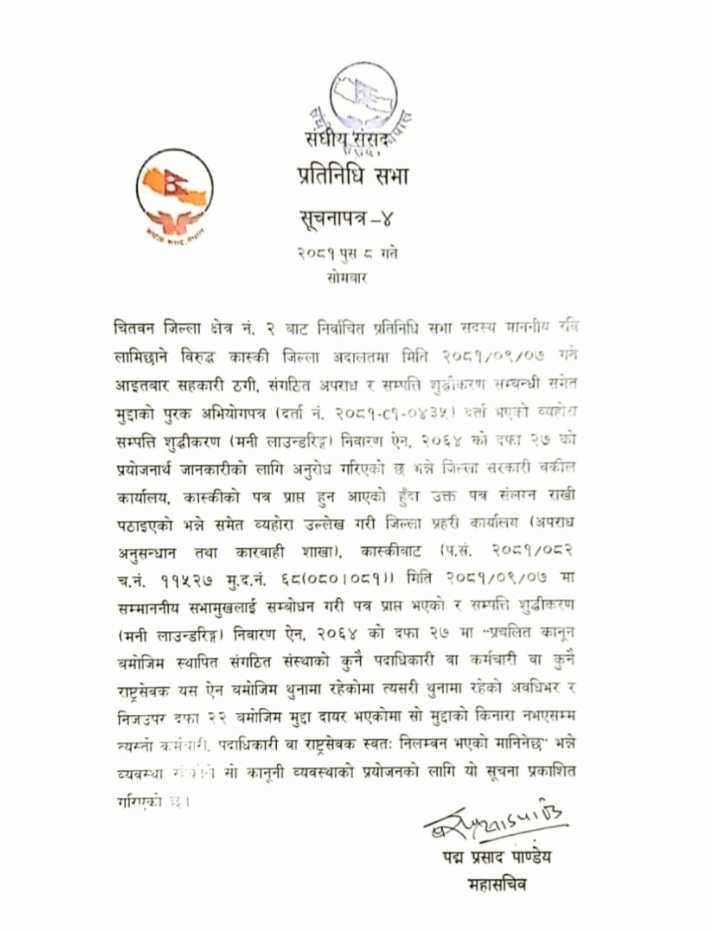 संघीय संसद
प्रतिनिधि सभा
सूचनापत्र –४
२०८१ पुस ८ गते
सोमबार
चितवन जिल्ला क्षेत्र नं. २ बाट निर्वाचित प्रतिनिधि सभा सदस्य माननीय रवि
लामिछाने विरुद्ध कास्की जिल्ला अदालतमा मिति २०८१/०९/०७ गते
आइतबार सहकारी ठगी, संगठित अपराध र सम्पत्ति शुद्धीकरण सम्बन्धी समेत
मुद्दाको पुरक अभियोगपत्र (दर्ता नं. २०८१-C१-०४३५) दर्ता भएको व्यहोरा
सम्पत्ति शुद्धीकरण (मनी लाउन्डरिङ्ग) निवारण ऐन, २०६४ को दफा २७ को
प्रयोजनार्थ जानकारीको लागि अनुरोध गरिएको छ भन्ने जिल्ला सरकारी वकील
कार्यालय, कास्कीको पत्र प्राप्त हुन आएको हुँदा उक्त पत्र संलग्न राखी
पठाइएको भन्ने समेत व्यहोरा उल्लेख गरी जिल्ला प्रहरी कार्यालय (अपराध
अनुसन्धान तथा कारवाही शाखा), कास्कीबाट (प.सं. २०८१/०८२
च.नं. ११५२७ मु.द.नं. ६८(०८०।०८१)) मिति २०८१/०९/०७ मा
सम्माननीय सभामुखलाई सम्बोधन गरी पत्र प्राप्त भएको र सम्पत्ति शुद्धीकरण
(मनी लाउन्डरिङ्ग) निवारण ऐन, २०६४ को दफा २७ मा "प्रचलित कानून
बमोजिम स्थापित संगठित संस्थाको कुनै पदाधिकारी वा कर्मचारी वा कुनै
राष्ट्रसेवक यस ऐन बमोजिम थुनामा रहेकोमा त्यसरी थुनामा रहेको अवधिभर र
निजउपर दफा २२ बमोजिम मुद्दा दायर भएकोमा सो मुद्दाको किनारा नभएसम्म
त्यस्तो कर्मचारी, पदाधिकारी वा राष्ट्रसेवक स्वतः निलम्बन भएको मानिनेछ" भन्ने
व्यवस्था सो कानूनी व्यवस्थाको प्रयोजनको लागि यो सूचना प्रकाशित
गरिएको छ।
पद्म प्रसाद पाण्डेय
महासचिव